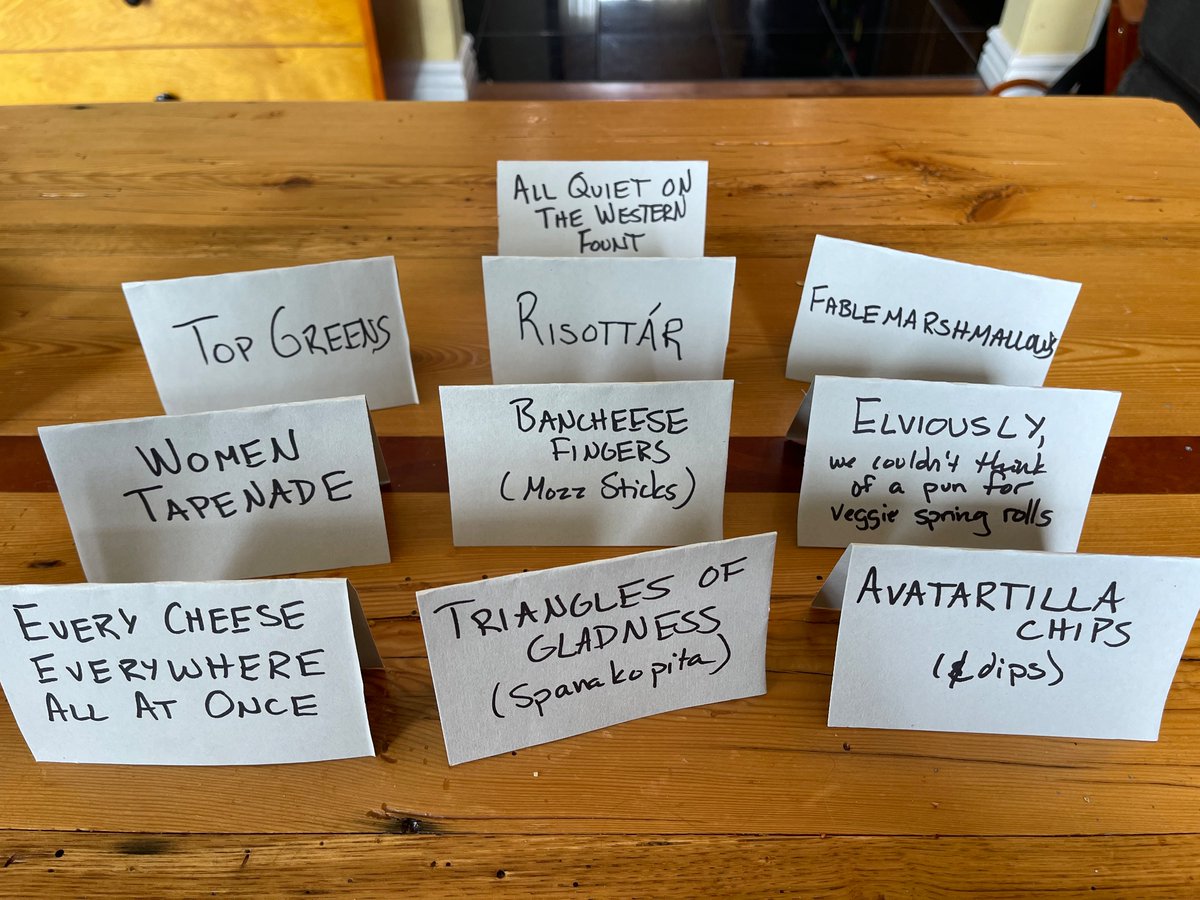 ALL QUIET ON
THE WESTERN
FOUNT
TOP GREENS
RISOTTÁR
FABLEMARSHMALLOWS
WOMEN
TAPENADE
BANCHEESE
FINGERS
(MOZZ STICKS)
ELVIOUSLY,
we couldn't think
of a pun for
veggie spring rolls
EVERY CHEESE
EVERYWHERE
ALL AT ONCE
TRIANGLES OF
GLADNESS
(Spanakopita)
AVATARTILLA
CHIPS
(& dips)